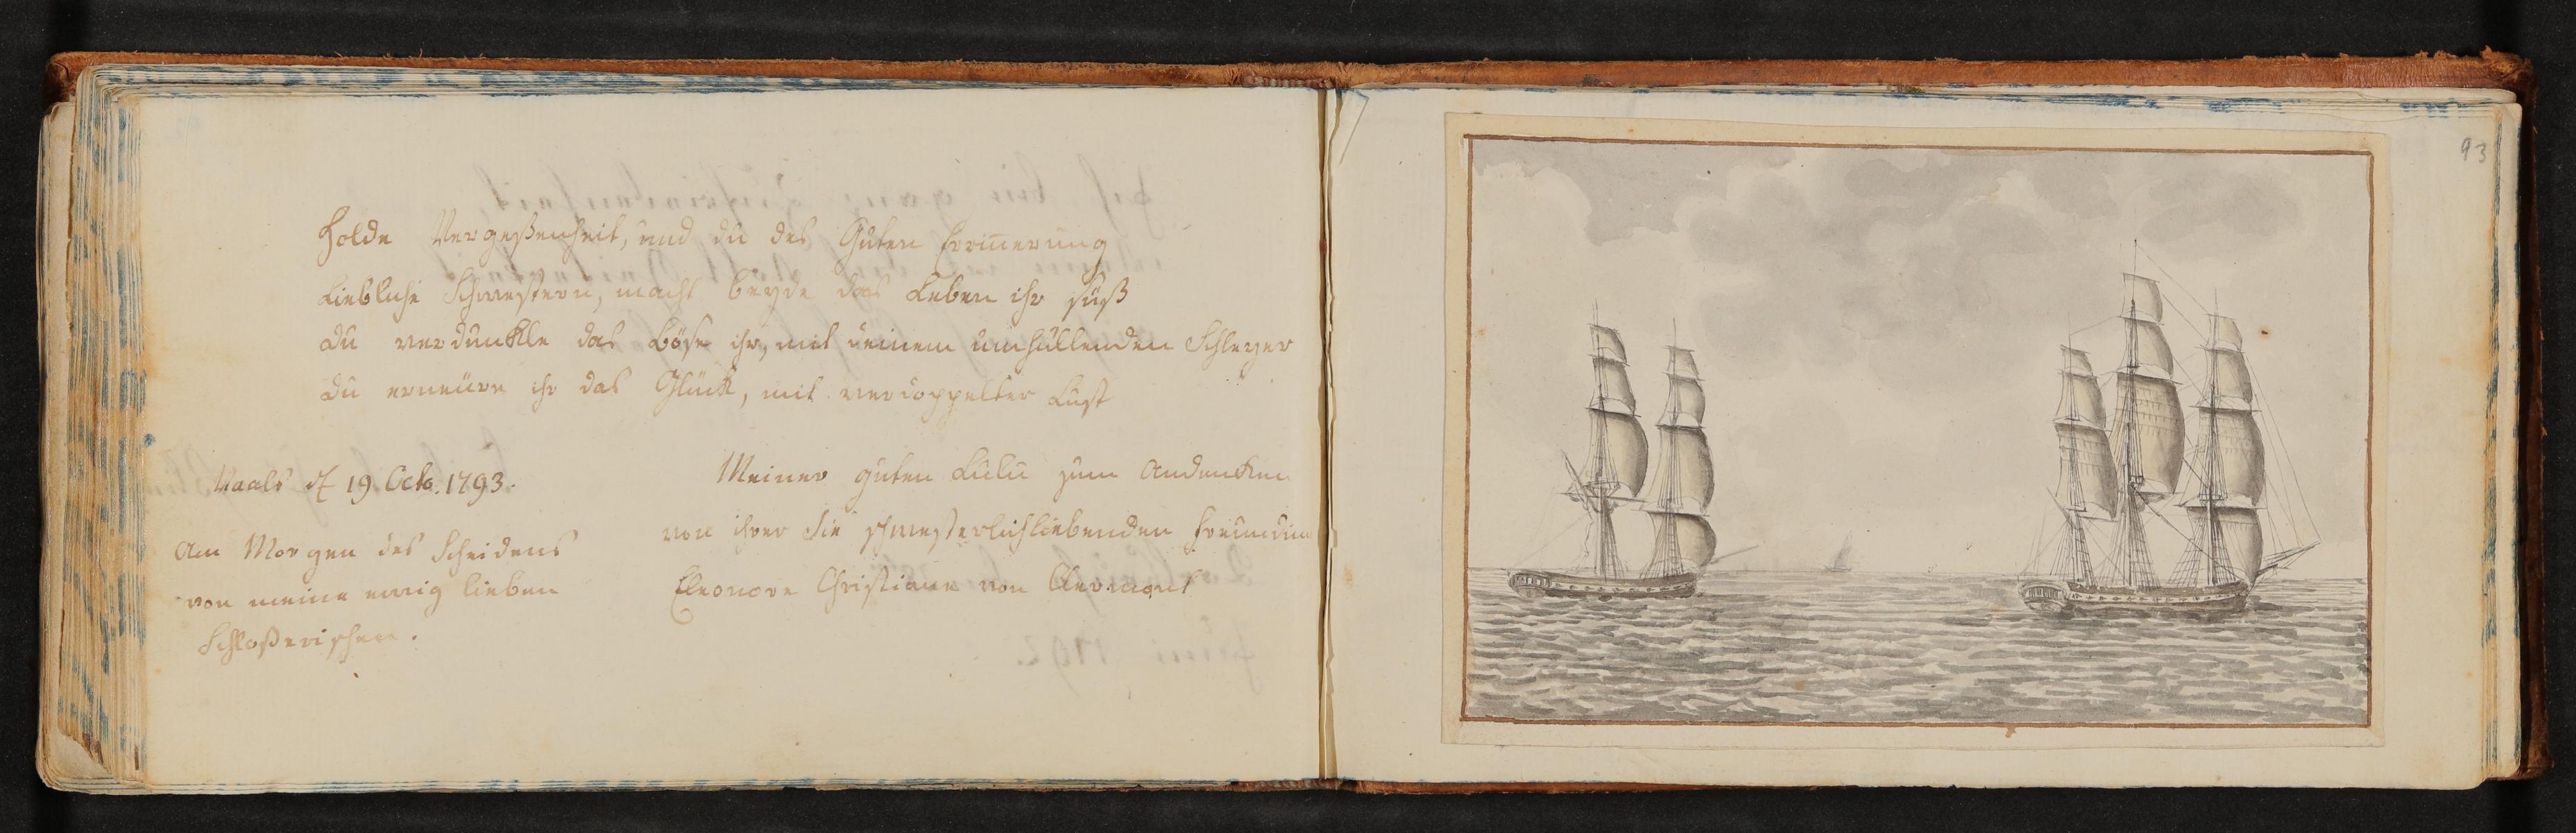 Holde Vergeßenheit, und du des Guten Erinnerung
Liebliche Schwestern, macht beyde das Leben ihr süß
du verdunckle das Böse ihr, mit deinem umhüllenden Schleyer
du erneüre ihr das Glück, mit verdoppelter Lust
Vaals d 19 Octo. 1793.
Am Morgen des Scheidens
von meine ewig lieben
Schloßerischen.
Meiner guten Lulu zum Andencken
von ihrer Sie schwesterlichliebenden Freundin
Eleonore Christiane von Clermont
93